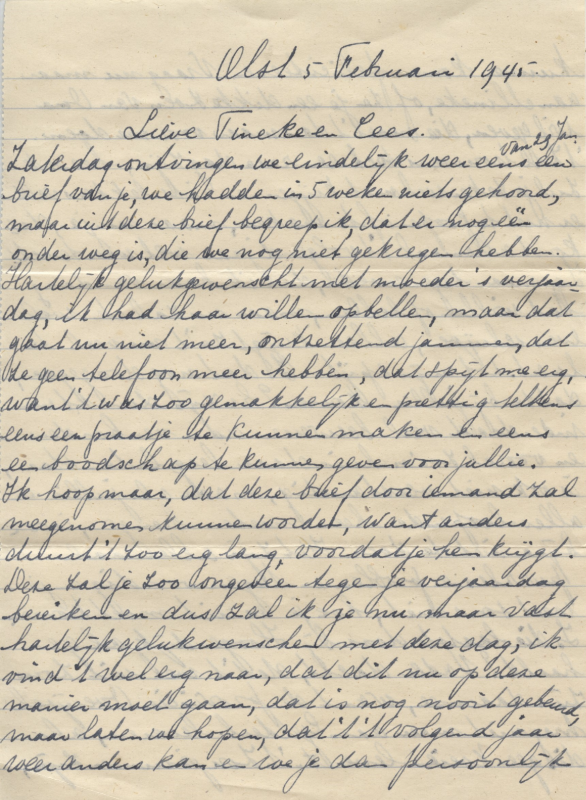 Olst 5 Februari 1945
Lieve Tineke en Cees.
van 29 Jan.
Zaterdag ontvingen we eindelijk weer eens een
brief van je, we hadden in 5 weken niets gehoord,
maar uit deze brief begreep ik, dat er nog één
onder weg is, die we nog niet gekregen hebben.
Hartelijk gelukgewenscht met moeder's verjaar-
dag, ik had haar willen opbellen, maar dat
gaat nu niet meer, ontzettend jammer, dat
ze geen telefoon meer hebben, dat spijt me erg,
want 't was zoo gemakkelijk en prettig telkens
eens een praatje te kunnen maken en eens
een boodschap te kunnen geven voor jullie.
Ik hoop maar, dat deze brief door iemand zal
meegenomen kunnen worden, want anders
duurt 't zoo erg lang, voordat je hem krijgt.
Deze zal je zoo ongeveer tegen je verjaardag
bereiken en dus zal ik je nu maar vast
hartelijk gelukwenschen met deze dag, ik
vind 't wel erg naar, dat dit nu op deze
manier moet gaan, dat is nog nooit gebeurd,
maar laten we hopen, dat 't 't volgend jaar
weer anders kan en we je dan persoonlijk